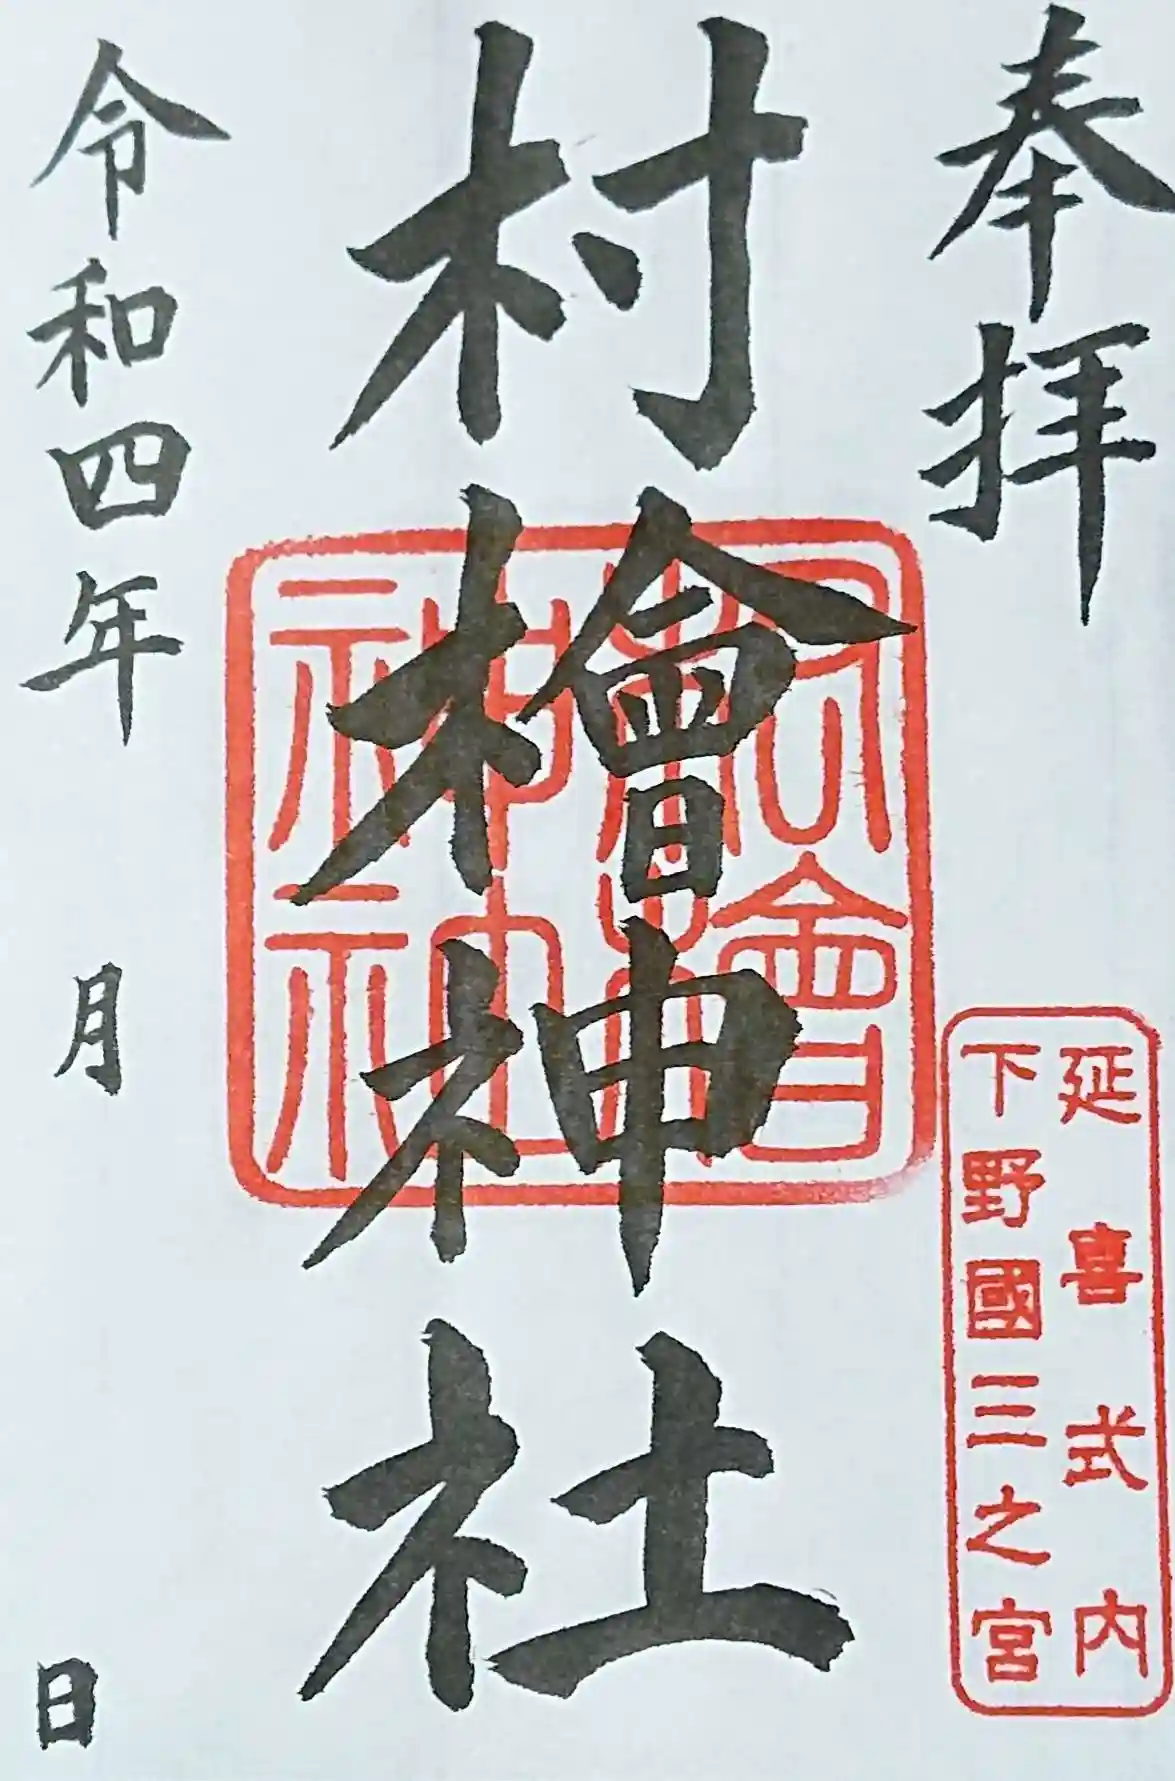 奉拝
延喜式内
下野國三之宮
村檜神社
令和四年 月 日